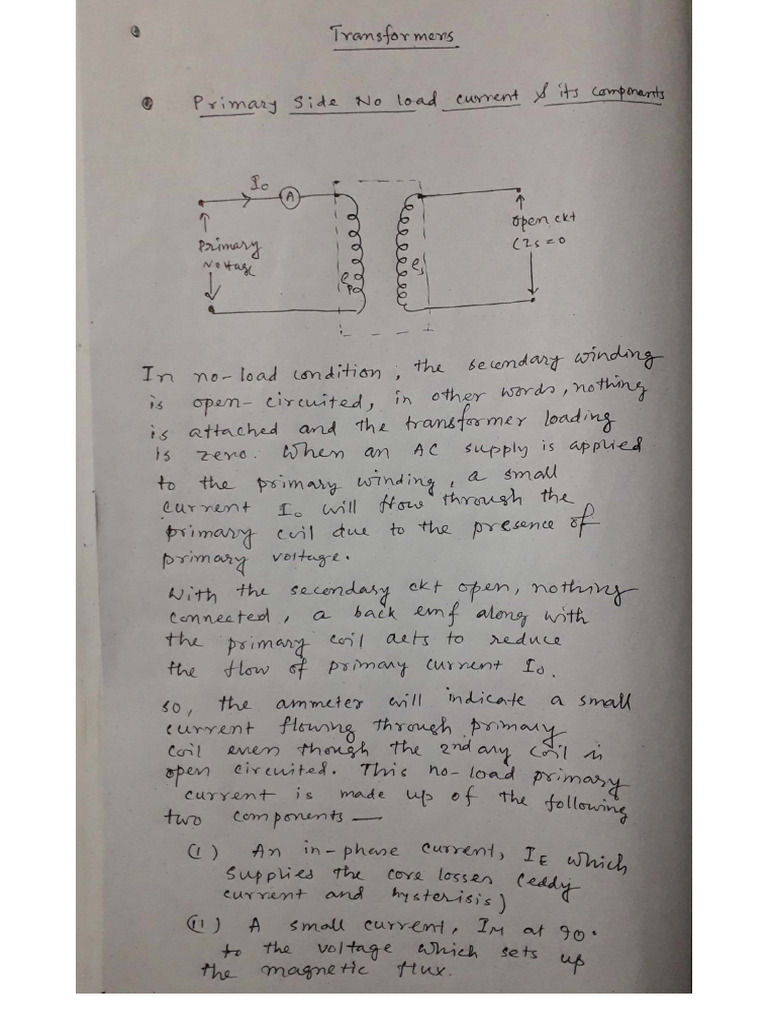 Transformers
Primary Side No load current & its components
I₀
A
Primary
Voltage
eₚ
eₛ
Open ckt
In no-load condition, the secondary winding
is open-circuited, in other words, nothing
is attached and the transformer loading
is zero. When an AC supply is applied
to the primary winding, a small
current I₀ will flow through the
primary coil due to the presence of
primary voltage.
With the secondary ckt open, nothing
connected, a back emf along with
the primary coil acts to reduce
the flow of primary current I₀.
So, the ammeter will indicate a small
current flowing through primary
coil even though the 2ndary coil is
open circuited. This no-load primary
current is made up of the following
two components —
(i) An in-phase current, I_E which
supplies the core losses (eddy
current and hysterisis)
(ii) A small current, I_M at 90°
to the voltage which sets up
the magnetic flux.